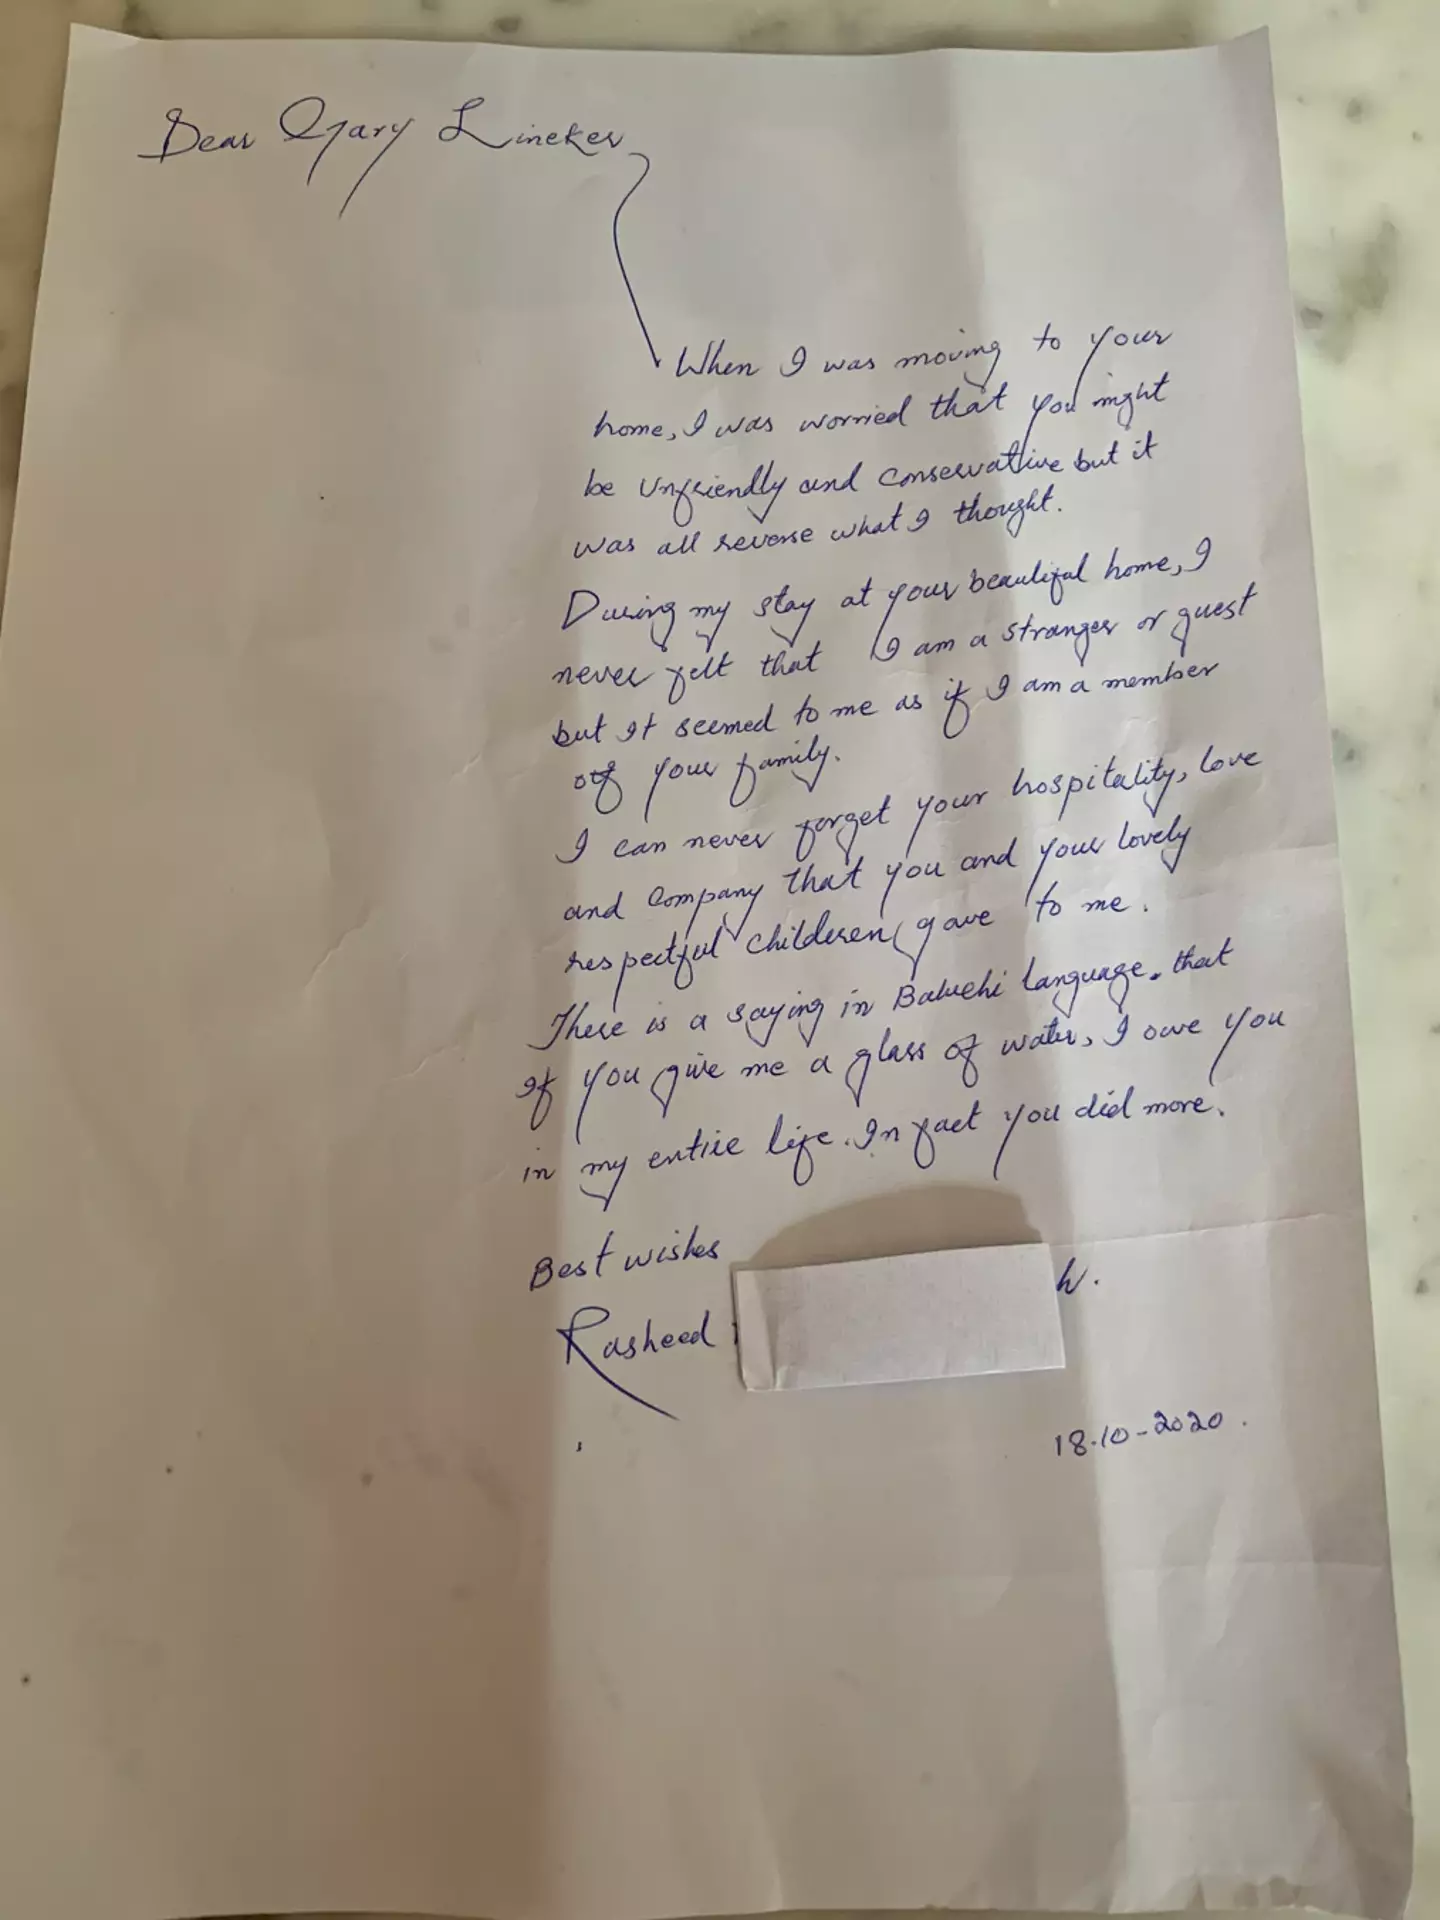 Dear Gary Lineker,
When I was moving to your
home, I was worried that you might
be unfriendly and conservative but it
was all reverse what I thought.
During my stay at your beautiful home, I
never felt that I am a stranger or guest
but it seemed to me as if I am a member
of your family.
I can never forget your hospitality, love
and company that you and your lovely
respectful children gave to me.
There is a saying in Baluchi language. that
If you give me a glass of water, I owe you
in my entire life. In fact you did more.
Best wishes
Rasheed h.
18.10-2020.